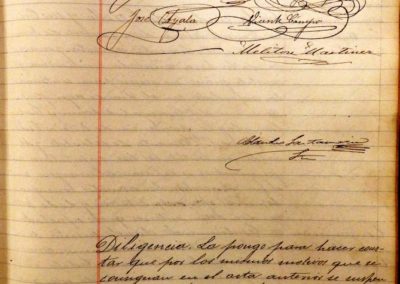 José Ayala Vicente Campo
Melitón Martínez
Diligencia. La pongo para hacer cons-
tar que por los mismos motivos que se
consignan en el acta anterior se suspen